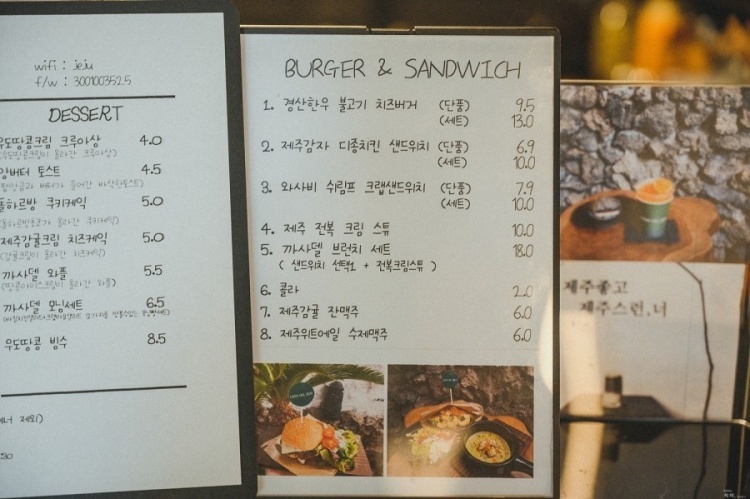 wifi : jeju
f/w : 3001003525
DESSERT
우도땅콩크림 크루아상 4.0
앙버터 토스트 4.5
돌하르방 쿠키케익 5.0
제주감귤크림 치즈케익 5.0
까사델 와플 5.5
까사델 모닝세트 6.5
우도땅콩 빙수 8.5
BURGER & SANDWICH
1. 경산한우 불고기 치즈버거 (단품) 9.5
(세트) 13.0
2. 제주감자 디종치킨 샌드위치 (단품) 6.9
(세트) 10.0
3. 와사비 쉬림프 크랩샌드위치 (단품) 7.9
(세트) 10.0
4. 제주 전복 크림 스튜 10.0
5. 까사델 브런치 세트 18.0
( 샌드위치 선택1 + 전복크림스튜 )
6. 콜라 2.0
7. 제주감귤 잔맥주 6.0
8. 제주위트에일 수제맥주 6.0
제주좋고
제주스런, 너